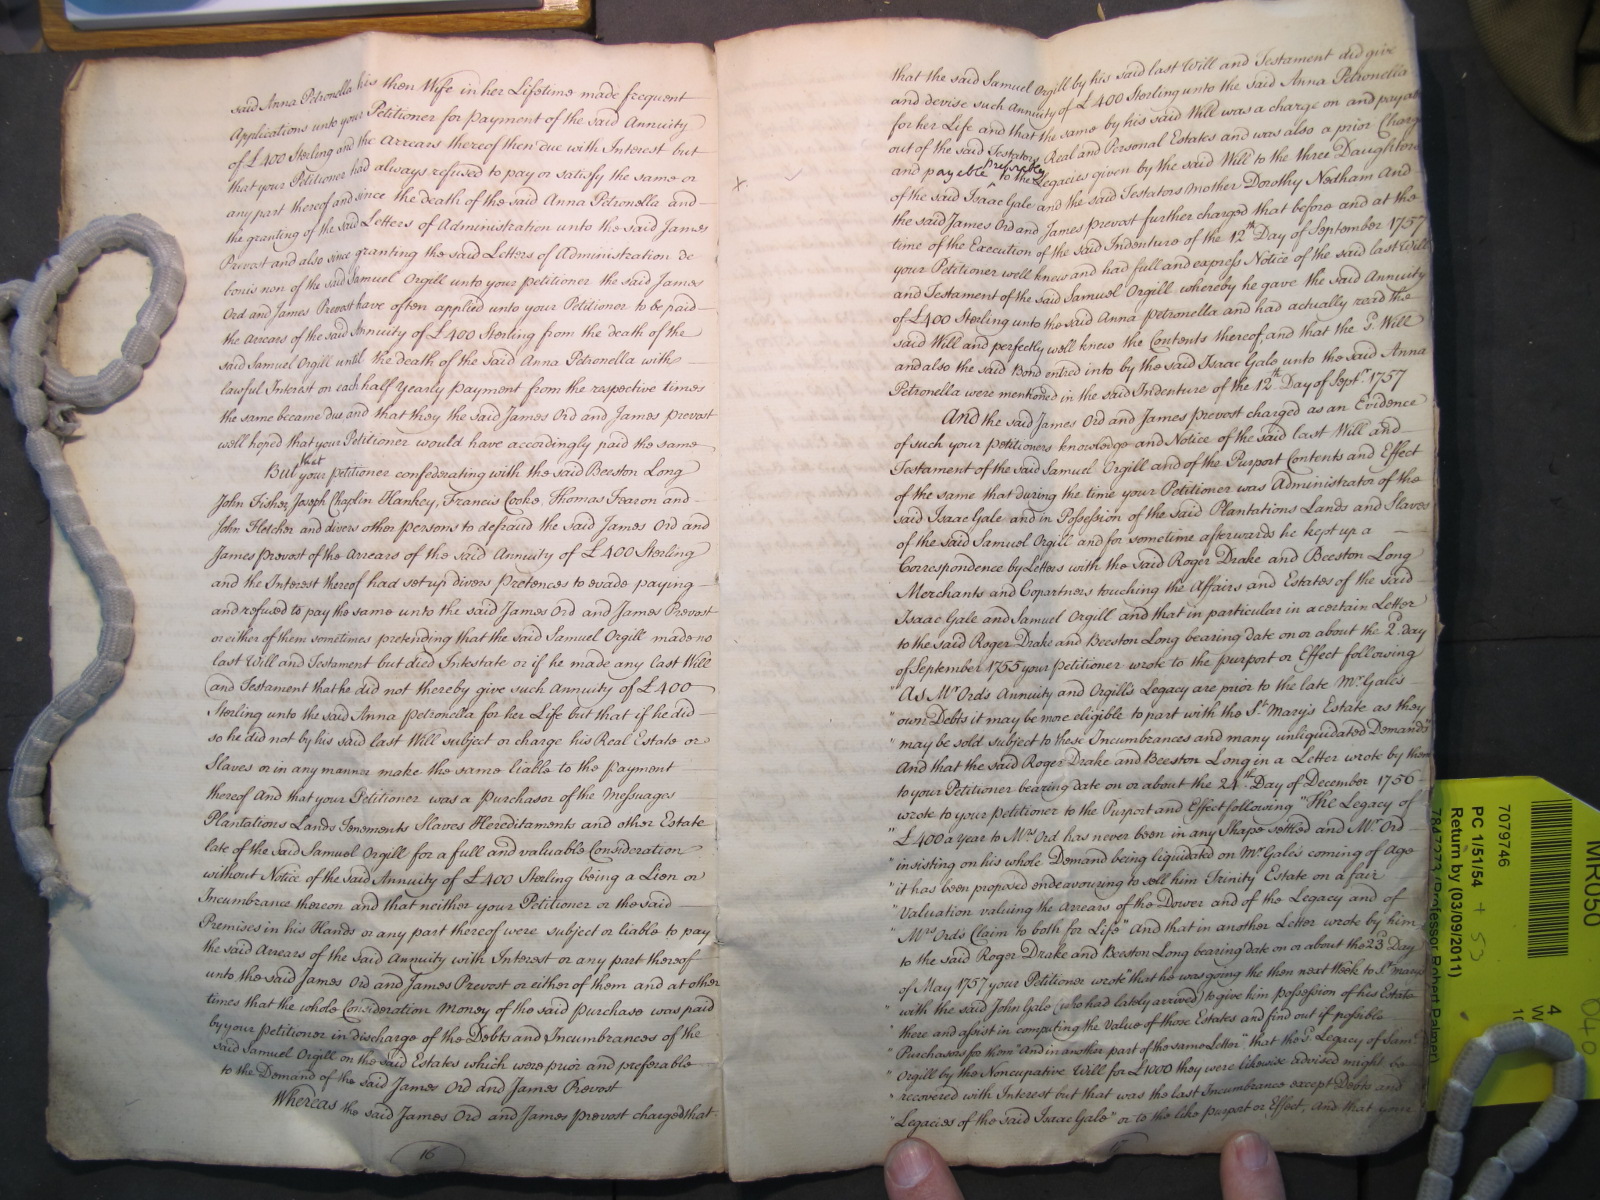 said Anna Petronella his then Wife in her Lifetime made frequent
Applications unto your Petitioner for Payment of the said Annuity
of £400 Sterling and the Arrears thereof then due with Interest but
that your Petitioner had always refused to pay or satisfy the same or
any part thereof and since the death of the said Anna Petronella and
the granting of the said Letters of Administration unto the said James
Prevost and also since granting the said Letters of Administration de
bonis non of the said Samuel Orgill unto your petitioner the said James
Ord and James Prevost have often applied unto your Petitioner to be paid
the Arrears of the said Annuity of £400 Sterling from the death of the
said Samuel Orgill until the death of the said Anna Petronella with
lawful Interest on each half Yearly Payment from the respective times
the same became due and that they the said James Ord and James Prevost
well hoped that your Petitioner would have accordingly paid the same
But that your petitioner confederating with the said Beeston Long
John Fisher, Joseph Chaplin Hankey, Francis Cooke, Thomas Fearon and
John Fletcher and divers other persons to defraud the said James Ord and
James Prevost of the Arrears of the said Annuity of £400 Sterling
and the Interest thereof had set up divers Pretences to evade paying
and refused to pay the same unto the said James Ord and James Prevost
or either of them sometimes pretending that the said Samuel Orgill made no
last Will and Testament but died Intestate or if he made any last Will
and Testament that he did not thereby give such Annuity of £400
Sterling unto the said Anna Petronella for her Life but that if he did
so he did not by his said last Will subject or charge his Real Estate or
Slaves or in any manner make the same liable to the payment
thereof And that your Petitioner was a purchasor of the Messuages
Plantations Lands Tenements Slaves Hereditaments and other Estate
late of the said Samuel Orgill for a full and valuable Consideration
without Notice of the said Annuity of £400 Sterling being a Lien or
Incumbrance thereon and that neither your Petitioner or the said
Premises in his Hands or any part thereof were subject or liable to pay
the said Arrears of the said Annuity with Interest or any part thereof
unto the said James Ord and James Prevost or either of them and at other
times that the whole Consideration Money of the said purchase was paid
by your petitioner in discharge of the Debts and Incumbrances of the
said Samuel Orgill on the said Estates which were prior and preferable
to the Demand of the said James Ord and James Prevost
Whereas the said James Ord and James Prevost charged that
16
that the said Samuel Orgill by his said last Will and Testament did give
and devise such Annuity of £400 Sterling unto the said Anna Petronella
for her Life and that the same by his said Will was a charge on and payable
out of the said Testators Real and Personal Estates and was also a prior Charge
x and payable preferably to the Legacies given by the said Will to the three Daughters
of the said Isaac Gale and the said Testators Mother Dorothy Nedham And
the said James Ord and James Prevost further charged that before and at the
time of the Execution of the said Indenture of the 12th Day of September 1757
your Petitioner well knew and had full and express Notice of the said last Will
and Testament of the said Samuel Orgill whereby he gave the said Annuity
of £400 Sterling unto the said Anna Petronella and had actually read the
said Will and perfectly well knew the Contents thereof, and that the sd. Will
and also the said Bond entred into by the said Isaac Gale unto the said Anna
Petronella were mentioned in the said Indenture of the 12th Day of Septr. 1757
And the said James Ord and James Prevost charged as an Evidence
of such your petitioners knowledge and Notice of the said last Will and
Testament of the said Samuel Orgill and of the Purport Contents and Effect
of the same that during the time your Petitioner was Administrator of the
said Isaac Gale and in Possession of the said Plantations Lands and Slaves
of the said Samuel Orgill and for sometime afterwards he kept up a
Correspondence by Letters with the said Roger Drake and Beeston Long
Merchants and Copartners touching the Affairs and Estates of the said
Isaac Gale and Samuel Orgill and that in particular in a certain Letter
to the said Roger Drake and Beeston Long bearing date on or about the 2d. day
of September 1755 your petitioner wrote to the purport or Effect following
"As Mrs Ords Annuity and Orgills Legacy are prior to the late Mr. Gales
" own Debts it may be more eligible to part with the St. Mary's Estate as they
" may be sold subject to these Incumbrances and many unliquidated Demands"
And that the said Roger Drake and Beeston Long in a Letter wrote by them
to your Petitioner bearing date on or about the 24th Day of December 1756
wrote to your petitioner to the Purport and Effect following "The Legacy of
" £400 a year to Mrs Ord has never been in any Shape settled and Mr Ord
" insisting on his whole Demand being liquidated on Mr Gale's coming of Age
" it has been proposed endeavouring to sell him Trinity Estate on a fair
" Valuation valuing the Arrears of the Dower and of the Legacy and of
" Mrs Ords Claim to both for Life" And that in another Letter wrote by him
to the said Roger Drake and Beeston Long bearing date on or about the 23d Day
of May 1757 your Petitioner wrote "that he was going the then next Week to St. Marys
" with the said John Gale (who had lately arrived) to give him possession of his Estate
" there and assist in computing the Value of those Estates and find out if possible
" Purchasors for them" And in another part of the same Letter "that the sd. Legacy of Saml.
" Orgill by the Noncupative Will for £1000 they were likewise advised might be
" recovered with Interest but that was the last Incumbrance except Debts and
" Legacies of the said Isaac Gale" or to the like purport or Effect, And that your
MR050
040
4
7079746
PC 1/51/54 + 53
Return by (03/09/2011)
(Professor Robert Palmer)